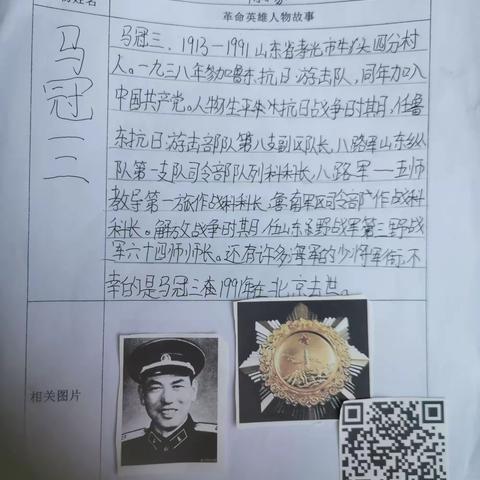 革命英雄人物故事
马冠三
马冠三，1913-1991山东省寿光市牛头四分村
人。一九三八年参加鲁东抗日游击队，同年加入
中国共产党。人物生平朱水抗日战争时其月，任鲁
东抗日游击部队第八支副区队长，八路军山东纵
队第一支队司令部队列科科长，八路军一一五师
教导第一旅作战科科长，鲁南军区司令部作战科
科长。解放战争时其月，任山东野战军第三野战
军六十四师师长。还有许多海军的少将军衔，不
幸的是马冠三在1991年在北京去世。
相关图片